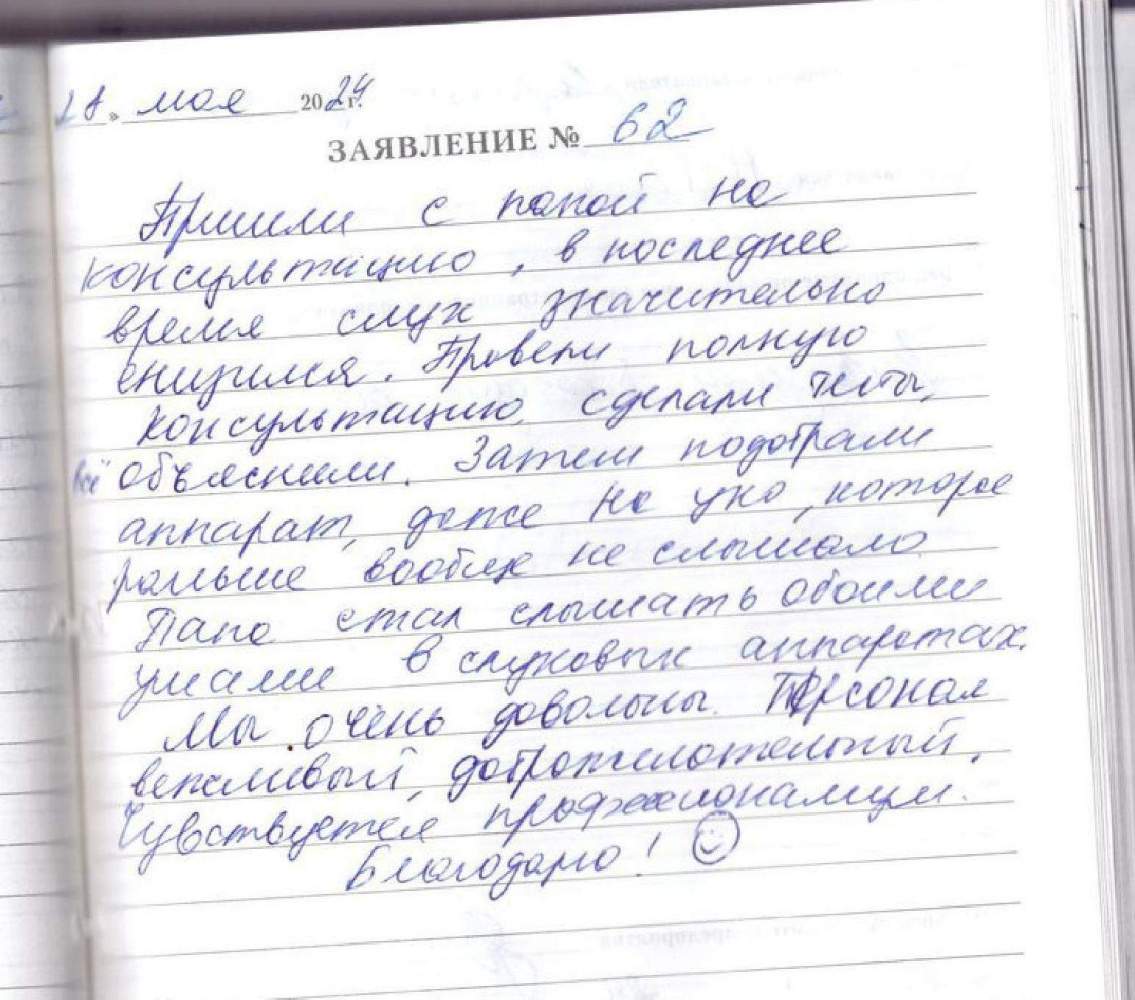 28 » мая 2024 г.
ЗАЯВЛЕНИЕ № 62
Пришли с папой на
консультацию, в последнее
время слух значительно
снизился. Провели полную
консультацию, сделали тесты,
всё объяснили. Затем подобрали
аппарат, даже на ухо, которое
раньше вообще не слышало.
Папа стал слышать обоими
ушами в слуховых аппаратах.
Мы очень довольны. Персонал
вежливый, доброжелательный,
Чувствуется профессионализм.
Благодарю!